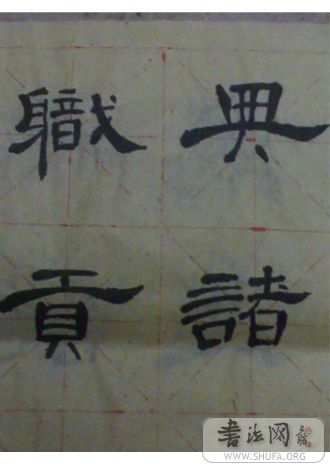 典諸
職貢
書法网
WWW.SHUFA.ORG